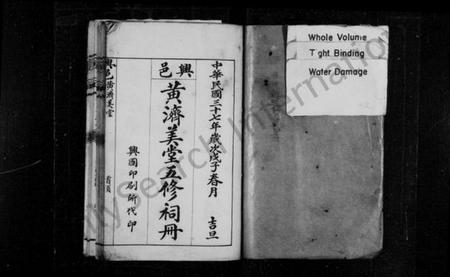 中華民國三十七年歲次戊子春月 吉旦
興邑
黃濟美堂五修祠冊
興國印刷所代印
黃濟美堂
Whole Volume
Tight Binding
Water Damage